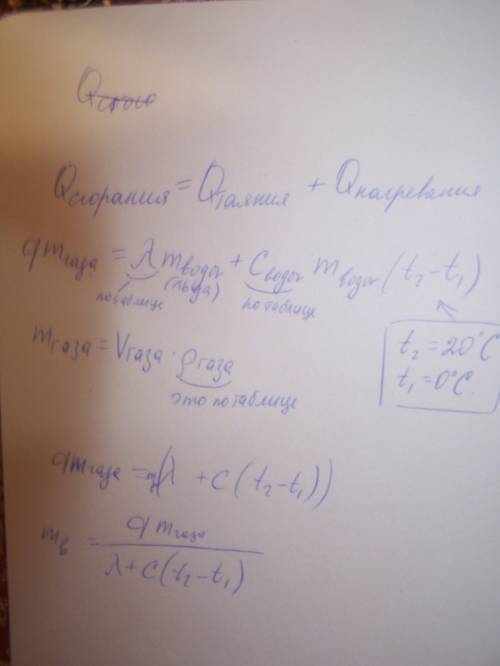 Qсгорания = Qтаяния + Qнагревания
q mгаза = λ mводы + Cводы mводы (t₂ - t₁)
(льда)
по таблице по таблице
t₂ = 20°C
t₁ = 0°C
mгаза = Vгаза · ρгаза
это по таблице
q mгаза = m(λ + C (t₂ - t₁))
mв = q mгаза / λ + C (t₂ - t₁)